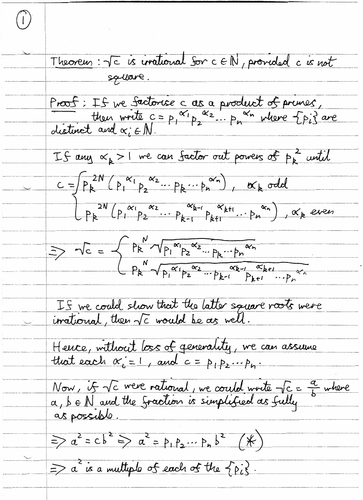 ①
Theorem : √c is irrational for c ∈ ℕ, provided c is not
square.
Proof : If we factorise c as a product of primes,
then write c = p₁^α₁ p₂^α₂ ... pₙ^αₙ where {pᵢ} are
distinct and αᵢ ∈ ℕ.
If any αₖ > 1 we can factor out powers of pₖ² until
c = { pₖ^2N (p₁^α₁ p₂^α₂ ... pₖ ... pₙ^αₙ) , αₖ odd
pₖ^2N (p₁^α₁ p₂^α₂ ... pₖ₋₁^αₖ₋₁ pₖ₊₁^αₖ₊₁ ... pₙ^αₙ) , αₖ even
⇒ √c = { pₖ^N √(p₁^α₁ p₂^α₂ ... pₖ ... pₙ^αₙ)
pₖ^N √(p₁^α₁ p₂^α₂ ... pₖ₋₁^αₖ₋₁ pₖ₊₁^αₖ₊₁ ... pₙ^αₙ)
If we could show that the latter square roots were
irrational, then √c would be as well.
Hence, without loss of generality, we can assume
that each αᵢ = 1, and c = p₁ p₂ ... pₙ.
Now, if √c were rational, we could write √c = a/b where
a, b ∈ ℕ and the fraction is simplified as fully
as possible.
⇒ a² = cb² ⇒ a² = p₁ p₂ ... pₙ b² (*)
⇒ a² is a multiple of each of the {pᵢ}.